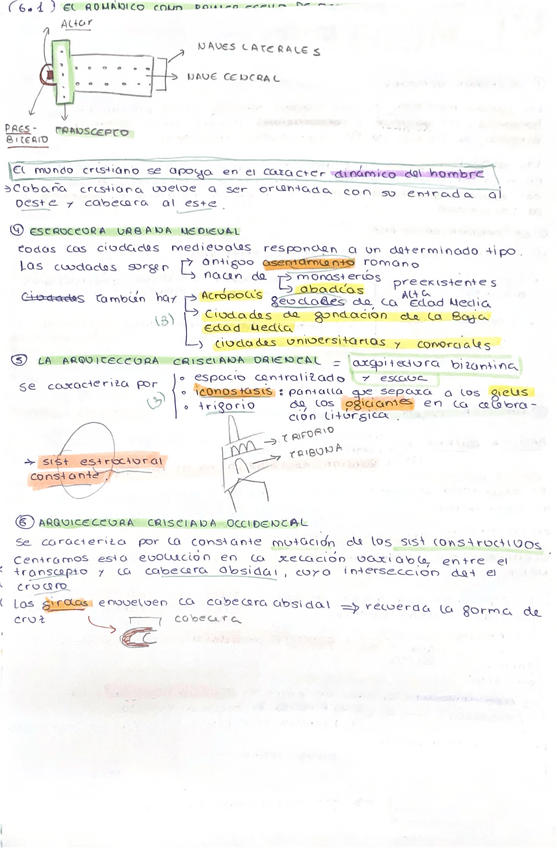 (6.1) EL ROMÁNICO COMO
Altar
NAVES LATERALES
NAVE CENTRAL
PRES-
BITERIO
TRANSCEPTO
El mundo cristiano se apoya en el caracter dinámico del hombre
→ Cabaña cristiana vuelve a ser orientada con su entrada al
oeste y cabecera al este.
④ ESTRUCTURA URBANA MEDIEVAL
todas las ciudades medievales responden a un determinado tipo.
Las ciudades surgen → antiguo asentamiento romano
→ nacen de → monasterios preexistentes
→ abadías
Ciudades también hay → Acrópolis feudales de la Alta Edad Media
(3) → Ciudades de fundación de la Baja
Edad Media
→ ciudades universitarias y comerciales
⑤ LA ARQUITECTURA CRISTIANA ORIENTAL = arquitectura bizantina
y eslava
Se caracteriza por
(3)
• espacio centralizado
• iconostasis: pantalla que separa a los fieles
de los oficiantes en la celebra-
ción litúrgica.
• triforio
→ TRIFORIO
→ TRIBUNA
→ sist estructural
constante.
⑥ ARQUITECTURA CRISTIANA OCCIDENTAL
Se caracteriza por la constante mutación de los sist constructivos.
Centramos esta evolución en la relación variable, entre el
transcepto y la cabecera absidal, cuya intersección det el
crucero
Las girolas envuelven la cabecera absidal ⇒ recuerda la forma de
cruz
cabecera